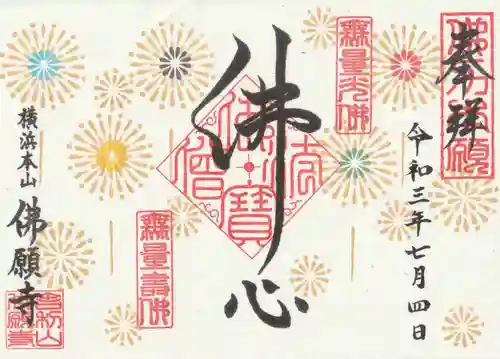 奉拝
令和三年七月四日
無量光佛
佛心
佛法僧寶
無量壽佛
横浜本山
佛願寺